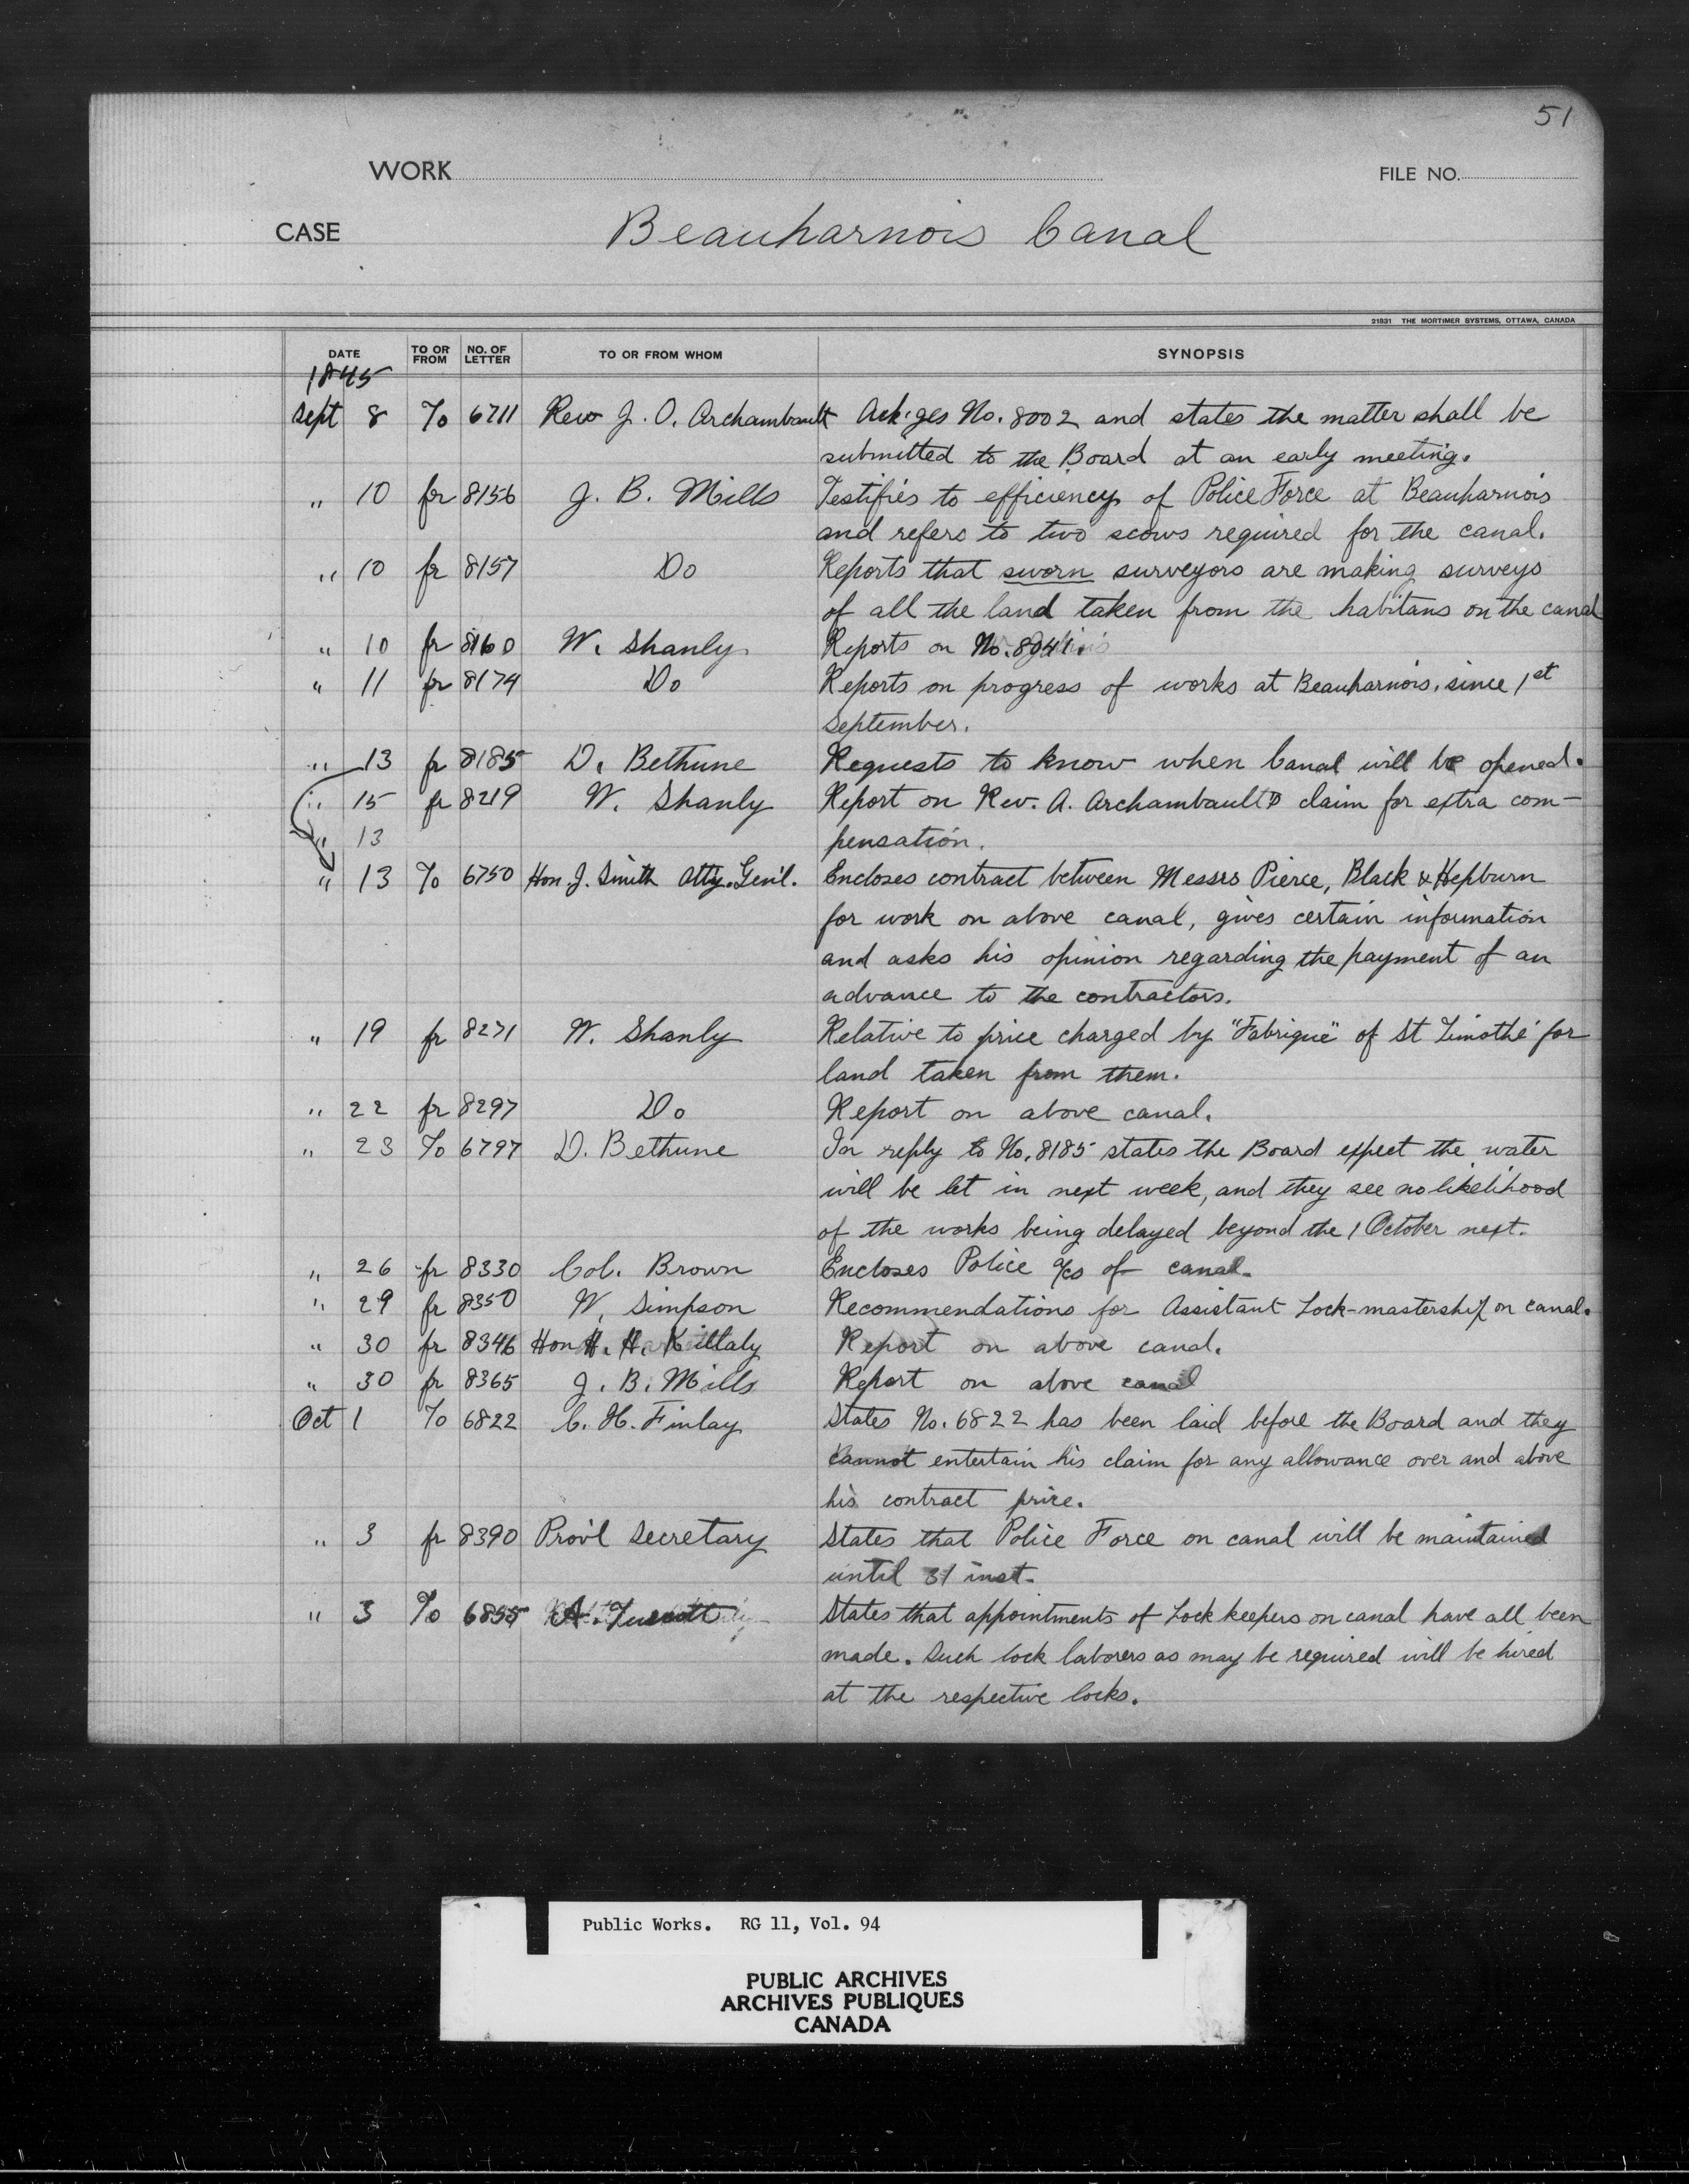 51
WORK FILE NO.
CASE Beauharnois Canal
21831 THE MORTIMER SYSTEMS, OTTAWA, CANADA
DATE TO OR FROM NO. OF LETTER TO OR FROM WHOM SYNOPSIS
1845
Sept 8 To 6711 Rev J. O. Archambault Ack'ges No. 8002 and states the matter shall be
submitted to the Board at an early meeting.
" 10 fr 8156 J. B. Mills Testifies to efficiency of Police Force at Beauharnois
and refers to two scows required for the canal.
" 10 fr 8157 Do Reports that sworn surveyors are making surveys
of all the land taken from the habitans on the canal
" 10 fr 8160 W. Shanly Reports on No. 8041.
" 11 fr 8174 Do Reports on progress of works at Beauharnois, since 1st
September.
" 13 fr 8185 D. Bethune Requests to know when Canal will be opened.
" 15 fr 8219 W. Shanly Report on Rev. A. Archambault's claim for extra com-
" 13 pensation.
" 13 To 6750 Hon J. Smith Atty. Gen'l. Encloses contract between Messrs Pierce, Black & Hepburn
for work on above canal, gives certain information
and asks his opinion regarding the payment of an
advance to the contractors.
" 19 fr 8271 W. Shanly Relative to price charged by "Fabrique" of St Timothé for
land taken from them.
" 22 fr 8297 Do Report on above canal.
" 23 To 6797 D. Bethune In reply to No. 8185 states the Board expect the water
will be let in next week, and they see no likelihood
of the works being delayed beyond the 1 October next.
" 26 fr 8330 Col. Brown Encloses Police a/cs of canal.
" 29 fr 8350 W. Simpson Recommendations for Assistant Lock-mastership on canal.
" 30 fr 8346 Hon H. H. Killaly Report on above canal.
" 30 fr 8365 J. B. Mills Report on above canal
Oct 1 To 6822 C. H. Finlay States No. 6822 has been laid before the Board and they
cannot entertain his claim for any allowance over and above
his contract price.
" 3 fr 8390 Prov'l Secretary States that Police Force on canal will be maintained
until 31 inst.
" 3 To 6855 A. States that appointments of Lock keepers on canal have all been
made. Such lock laborers as may be required will be hired
at the respective locks.
Public Works. RG 11, Vol. 94
PUBLIC ARCHIVES
ARCHIVES PUBLIQUES
CANADA